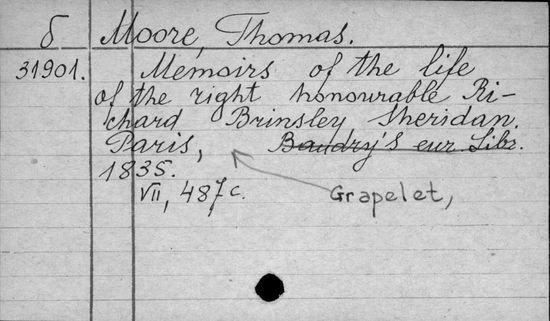 δ Moore, Thomas.
31901. Memoirs of the life
of the right honourable Ri-
chard Brinsley Sheridan.
Paris, Baudry's eur. Libr.
1835.
VII, 487 c. Grapelet,